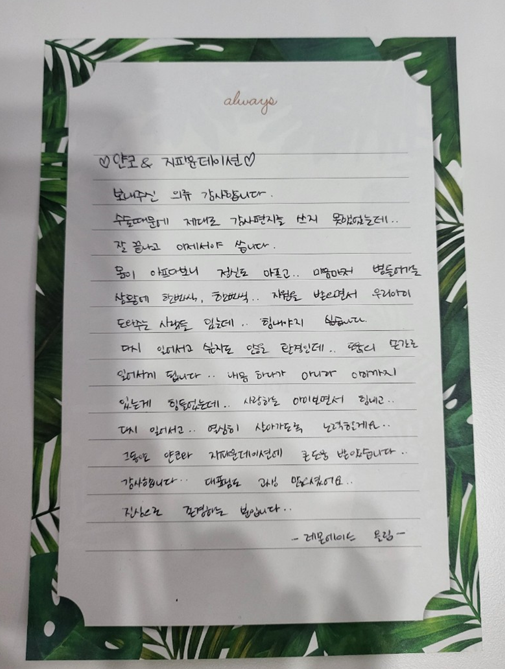 always
♡얀코 & 지파운데이션♡
보내주신 의류 감사합니다.
수술때문에 제대로 감사편지를 쓰지 못했었는데..
잘 끝나고 이제서야 씁니다.
몸이 아프다보니 정신도 아프고.. 마음마저 병들어가는
상황에 한번씩, 한번씩.. 지원을 받으면서 우리아이
도와주는 사람들 있는데.. 힘내야지 싶습니다.
다시 일어서고 싶지도 않은 환경인데.. 또
일어서게 됩니다.. 하나가 아니라 까지
있는게 힘들었는데.. 사랑하는 아이보면서 힘내고..
다시 일어서고.. 열심히 살아가도록 노력할게요..
그동안 얀코랑 지파운데이션에 큰도움 받았습니다..
감사합니다.. 대표님도 고생 많으셨어요..
진심으로 존경하는 분입니다..
-레몬에이드 올림-